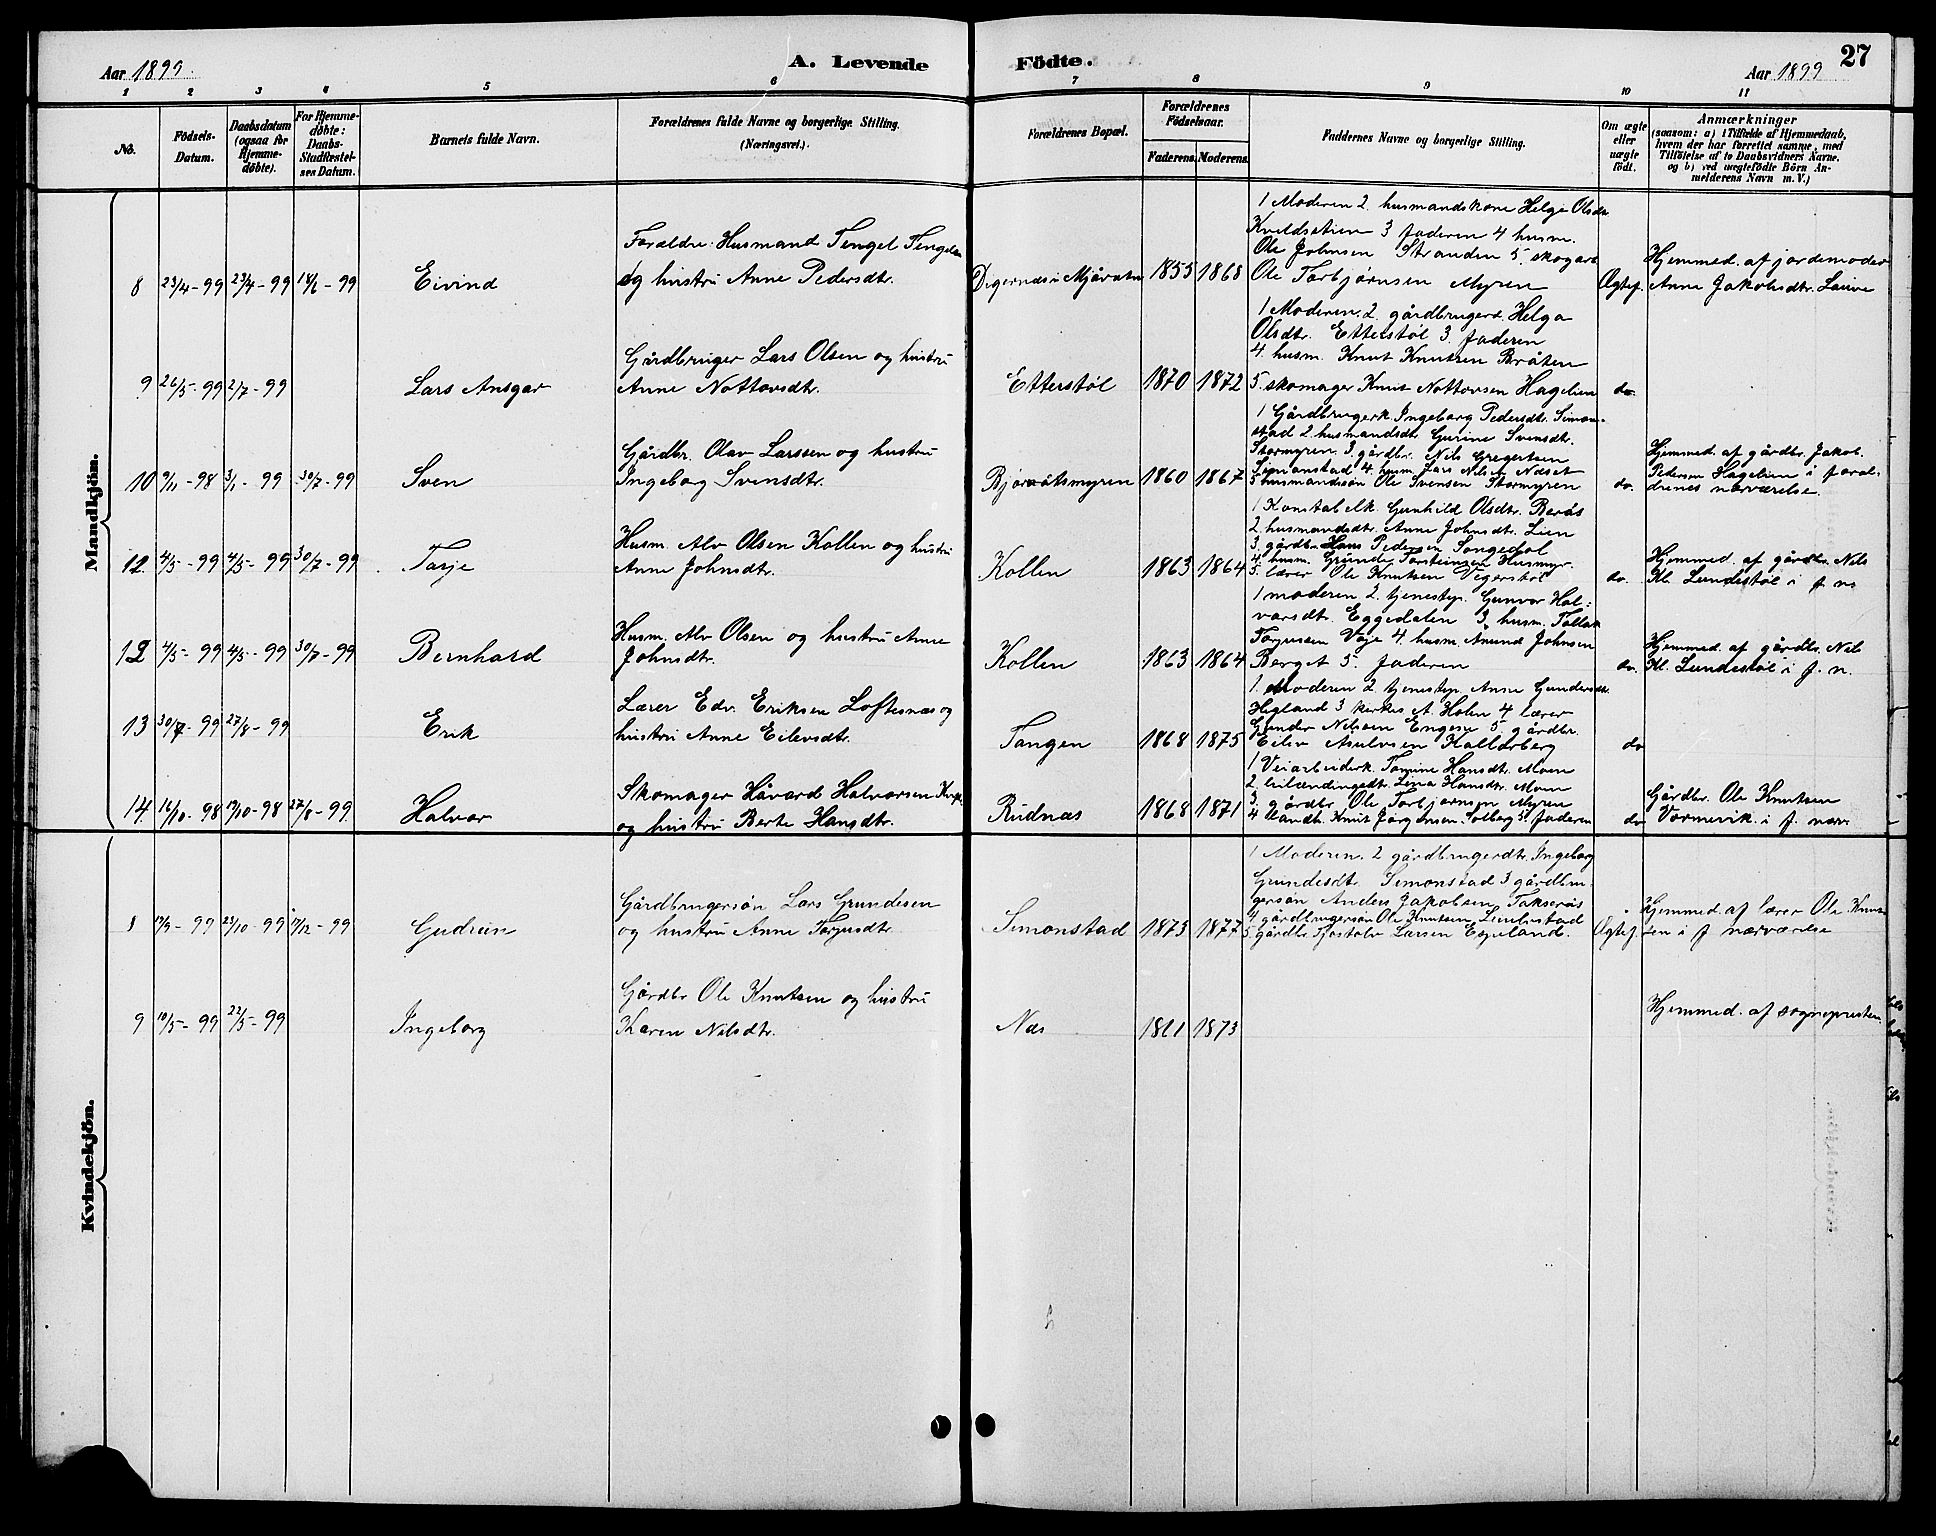 Aar 1899.
A. Levende
Födte.
Aar 1899
27
1 2 3 4 5 6 7 8 9 10 11
No.
Födsels-
Datum.
Daabsdatum
(ogsaa for
Hjemme-
döbte).
For Hjemme-
döbte:
Daabs-
Stadfæstel-
ses Datum.
Barnets fulde Navn.
Forældrenes fulde Navne og borgerlige Stilling.
(Næringsvei.)
Forældrenes Bopæl.
Forældrenes
Födselsaar.
Faderens. Moderens.
Faddernes Navne og borgerlige Stilling.
Om ægte
eller
uægte
födt.
Anmærkninger
(saasom: a) i Tilfælde af Hjemmedaab,
hvem der har forrettet samme, med
Tilföielse af to Daabsvidners Navne,
og b) ved uægtefödte Börn An-
melderens Navn m. V.)
Mandkjön.
8 23/4-99 23/4-99 18/6-99
Eivind
Forældre: Husmand Tengel Tengelsen
og hustru Anne Pedersdtr.
Digernæs i Mjåvatn
1855 1868
1 Moderen 2. husmandskone Helge Olsdtr.
Kveldsetien 3 faderen 4 husm.
Ole Johnsen Stranden 5. skogarb
Ole Torbjørnsen Myren
Ægtef.
Hjemmed. af jordemoder
Anne Jakobsdtr. Lauve
9 26/5-99 2/7-99
Lars Ansgar
Gårdbruger Lars Olsen og hustru
Anne Nottovsdtr.
Etterstøl
1870 1872
1 Moderen. 2. gårdbrugerd. Helga
Olsdtr. Etterstøl 3. faderen
4. husm. Knut Knutsen Bråten
5. skomager Knut Nottovsen Hagelien
do.
10 9/11-98 3/1-99 30/7-99
Sven
Gårdbr. Olav Larssen og hustru
Ingeborg Svensdtr.
Bjørnåtsmyren
1860 1867
1 Gårdbrugerk. Ingeborg Pedersdtr. Simon-
stad 2. husmandsdtr. Gurine Svensdtr.
Stormyren. 3. gårdbr. Nils Gregertsen
Simonstad 4. husm. Lars Nilsen Næset
5 husmandssøn Ole Svensen Stormyren
do.
Hjemmed. af gårdbr. Jakob
Pedersen Hagelien i foræl-
drenes nærværelse.
12. 4/5-99 4/5-99 30/7-99
Torje
Husm. Alv Olsen Kollen og hustru
Anne Johnsdtr.
Kollen
1863 1864
1 Konstabelk. Gunhild Olsdtr. Berås
2. husmandsdtr. Anne Johnsdtr. Lien
3. gårdbr. Hans Pedersen Songedal
4. husm. Grunde Torsteinsen Husmyr.
5. lærer Ole Knutsen Vegerstøl
do.
Hjemmed. af gårdbr. Nils
Kl. Lundestøl i f. n.
12 4/5-99 4/5-99 30/7-99
Bernhard
Husm. Alv Olsen og hustru Anne
Johnsdtr.
Kollen
1863 1864
1 moderen 2. tjenestep. Gunvor Hal-
varsdt. Eggedalen 3. husm. Tallak
Torjussen Voje 4 husm. Anund Johnsen
Berget 5. faderen
do.
Hjemmed. af gårdbr. Nils
Kl. Lundestøl i f. n.
13 30/7-99 27/8-99
Erik
Lærer Edv. Eriksen Loftesnæs og
hustru Anne Eilevsdtr.
Tangen
1868 1875
1. Moderen 2 tjenestep Anne Gundersdtr.
Høgland 3 kirkes. A. Holen 4 lærer
Gunder Nilssen Engene 5. gårdbr.
Eilev Asulvsen Kalldsberg
do
14 16/10-98 19/10-98 27/8-99
Halvor
Skomager Håvard Halvorsen
og hustru Berte Hansdtr.
Rudnæs
1868 1871
1 Veiarbeiderk. Tomine Hansdtr. Moen
2. leilændingsdt. Lina Hansdtr. Moen
3. gårdbr. Ole Torbjørnsen Myren
4 landh. Knut Jørgensen Solberg 5 faderen
do
Gårdbr. Ole Knutsen
Vormevik. i f. nærv.
Kvindekjön.
8 19/9-99 23/10-99 17/12-99
Gudrun
Gårdbrugersøn Lars Grundesen
og hustru Anne Torjusdtr.
Simonstad
1873 1877
1 Moderen. 2 gårdbrugerdtr. Ingeborg
Grundesdt. Simonstad 3 gårdbru-
gersøn Anders Jakobsen Takserås
4. gårdbrugersøn Ole Knutsen Simonstad
5. gårdbr. Tjøstolv Larsen Espeland.
Ægtef.
Hjemmed. af lærer Ole Knut-
sen i f nærværelse
9 10/5-99 22/5-99
Ingeborg
Gårdbr Ole Knutsen og hustru
Karen Nilsdtr.
Næs
1873
Hjemmed. af sognepresten